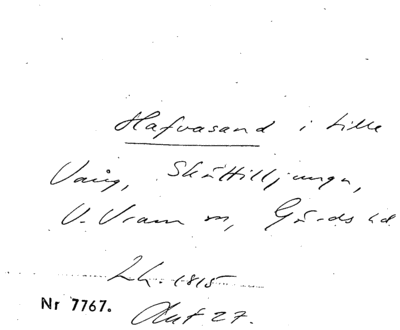 Hafvasand i Lille
Vång, Skåttilljunga,
V. Vram sn, Gärds hd
Lh. 1815
Nr 7767. Akt 27.